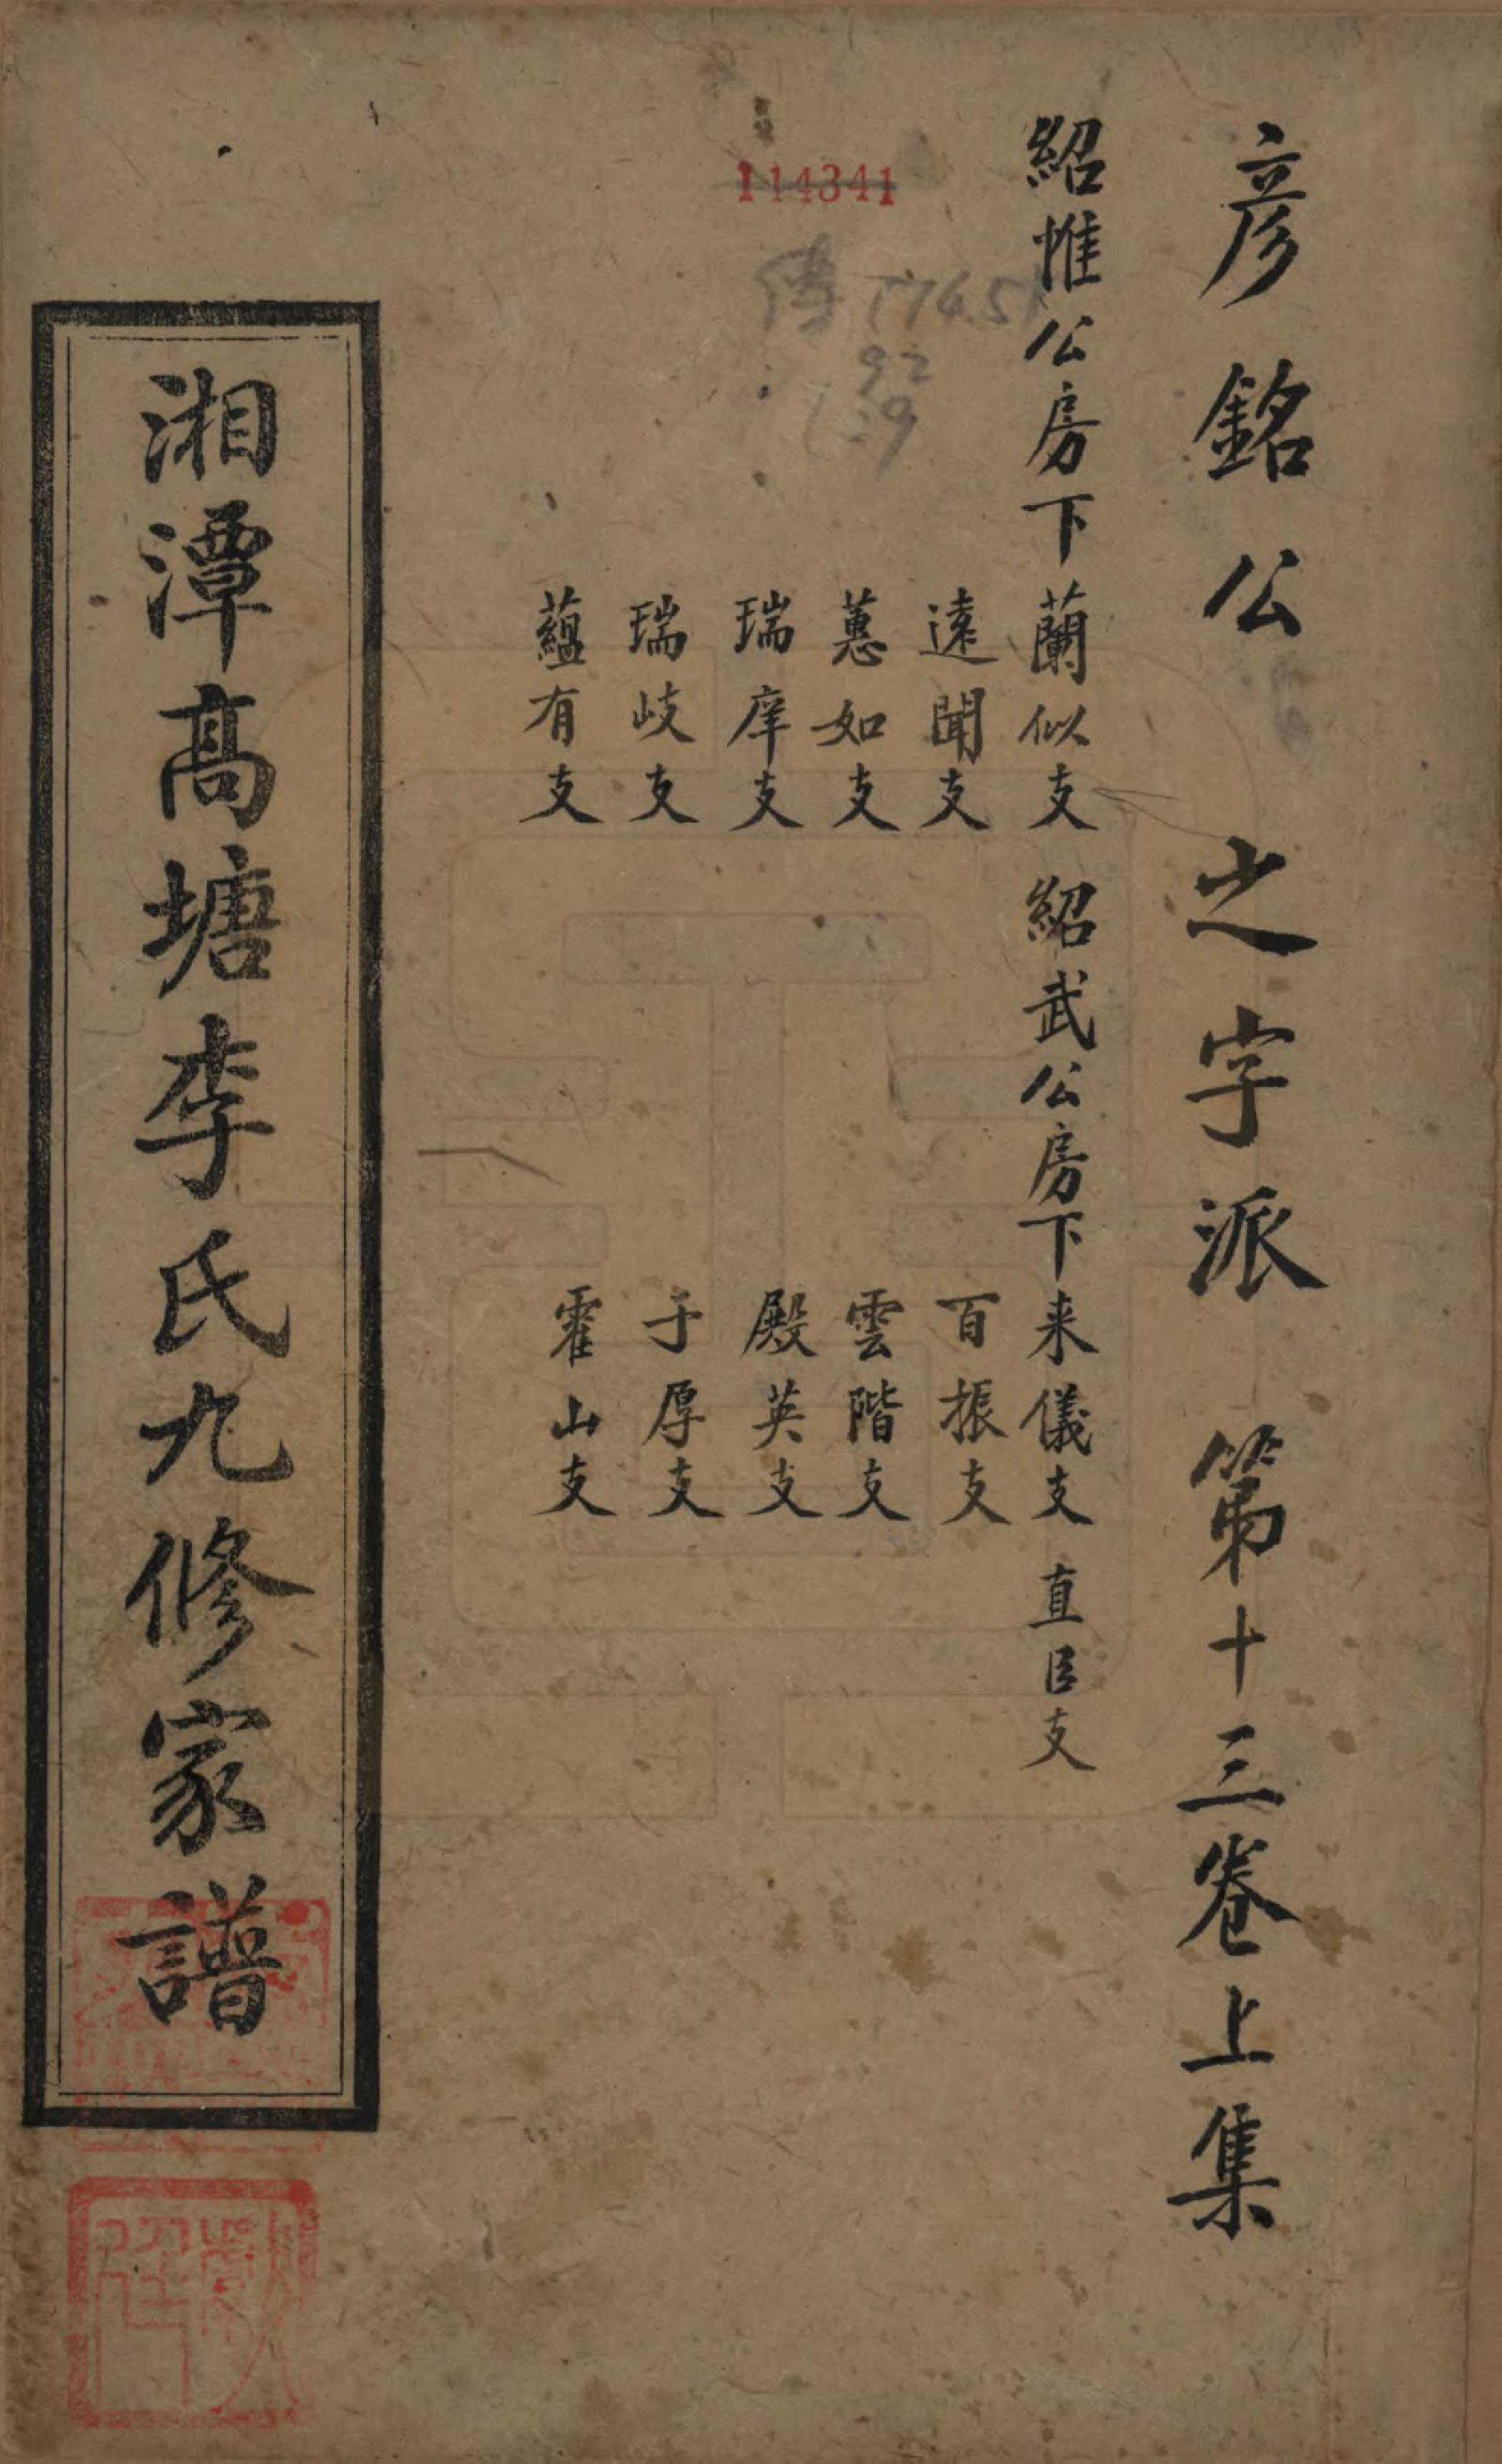 彥銘公　之字派　第十三卷上集
紹惟公房下蘭似支　紹武公房下来儀支　直臣支
遠聞支　百振支
蕙如支　雲階支
瑞庠支　殿英支
瑞岐支　子厚支
蘊有支　霍山支
114341
92
湘潭高塘李氏九修家譜